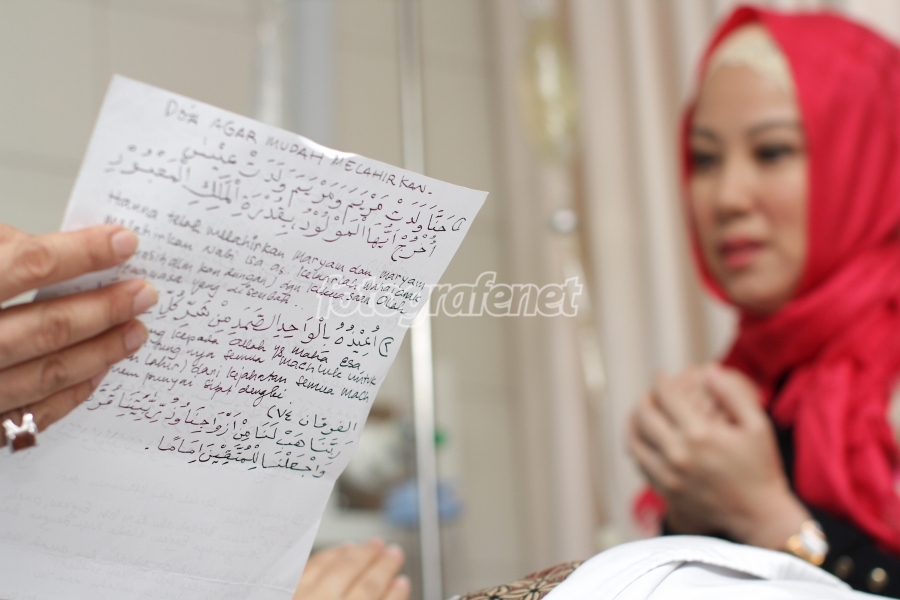 DO'A AGAR MUDAH MELAHIRKAN.
١) حَنَّا وَلَدَتْ مَرْيَمَ وَمَرْيَمُ وَلَدَتْ عِيْسَى
أُخْرُجْ أَيُّهَا الْمَوْلُوْدُ بِقُدْرَةِ الْمَلِكِ الْمَعْبُوْدِ
Hanna telah melahirkan Maryam dan Maryam
melahirkan Nabi Isa as. Keluarlah wahai anak
dan kekuasaan Allah
yang disembah.
٢) أُعِيْذُهُ بِالْوَاحِدِ الصَّمَدِ مِنْ شَرِّ كُلِّ
kepada Allah yg maha esa
nya semua machluk untuk
lahir) dari kejahatan semua mach
punyai sifat dengki
الفرقان ٧٤)
رَبَّنَا هَبْ لَنَا مِنْ أَزْوَاجِنَا وَذُرِّيَّتِنَا قُرَّةَ
وَاجْعَلْنَا لِلْمُتَّقِيْنَ إِمَامًا.
fotografenet